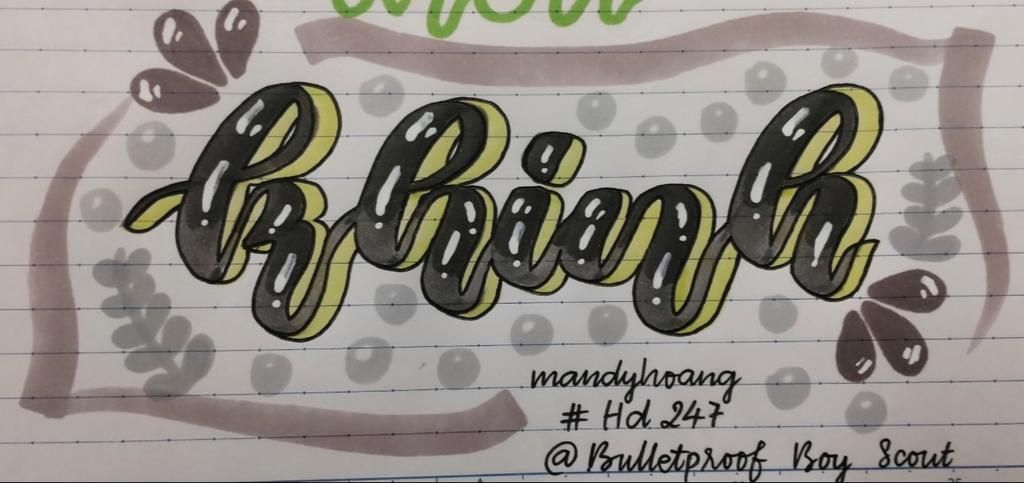 khinh
mandyhoang
# Hd. 247
@ Bulletproof Boy Scout